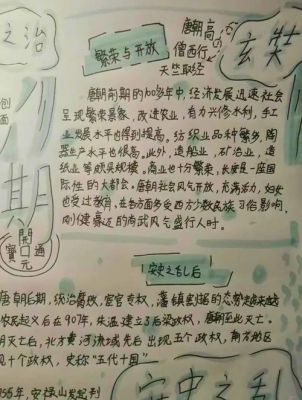 之治
繁荣与开放
唐朝高
僧西行
天竺取经
玄奘
唐朝前期的100多年中，经济发展迅速社会
呈现繁荣景象，改进农业，有力兴修水利，手工
业发展水平也得到提高，纺织业品种繁多，陶
器生产水平也很高。此外，造船业，矿冶业，造
纸业等颇具规模，商业也十分繁荣，长安是一座国
际性的大都会。唐朝社会风气开放，充满活力，妇女
也受过教育，在各方面多受西方少数民族习俗影响，
刚健豪迈的尚武风气盛行人时。
创
面
期
開
寳 口 通
元
安史之乱后
唐朝后期，统治腐败，宦官专权，藩镇割据的态势
农民起义后在907年，朱温建立了后梁政权，唐朝至此灭亡。
朝灭亡后，北方黄河流域先后出现五个政权，南方地区
现十个政权，史称“五代十国”
安禄山发起判
安史之乱